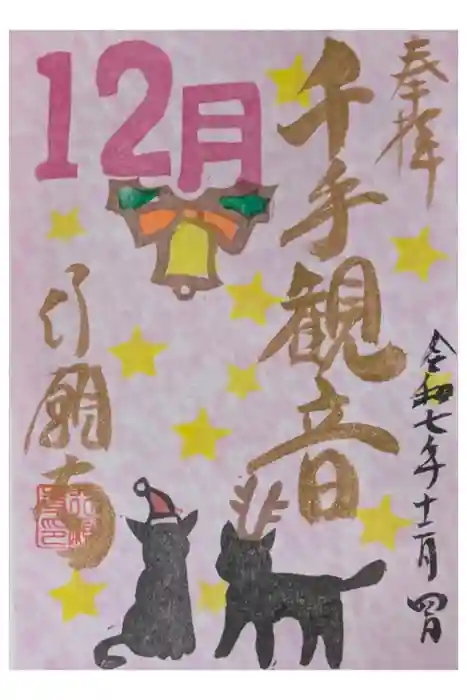 奉拝
千手観音
12月
行願寺
令和七年十二月四日